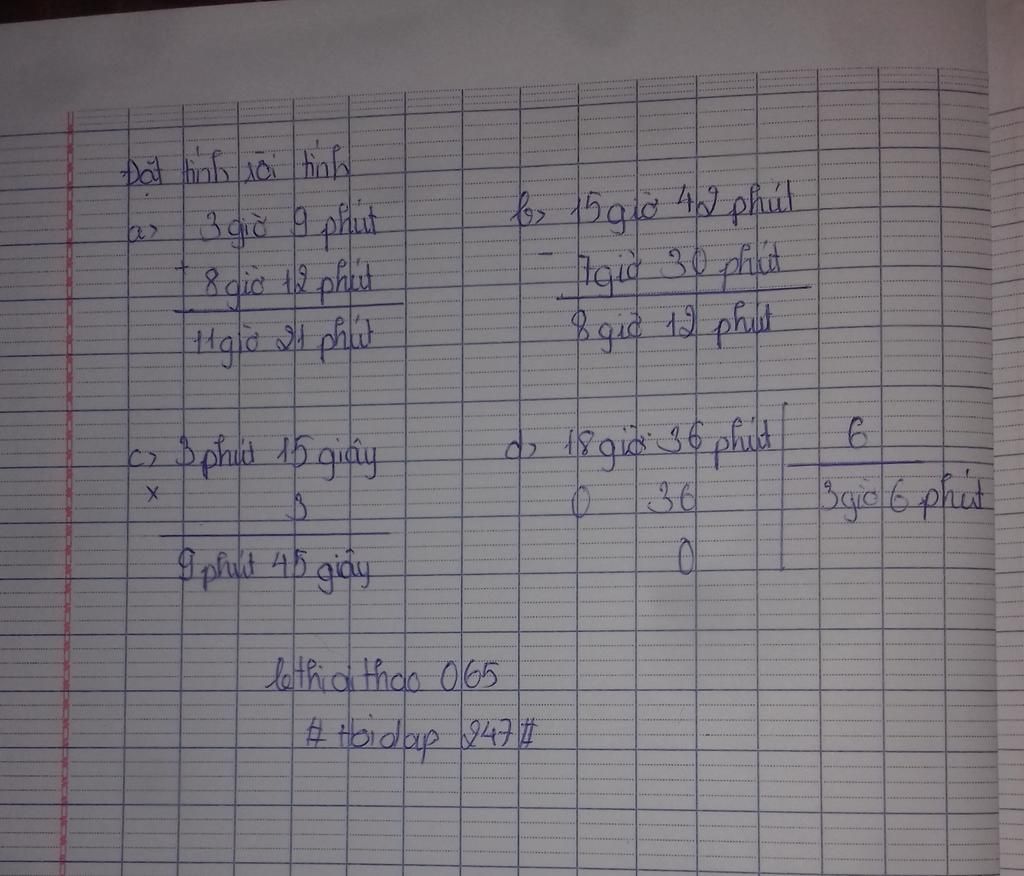 Đặt tính rồi tính
a> 3 giờ 9 phút
+
8 giờ 12 phút
11 giờ 21 phút
b> 15 giờ 42 phút
-
7 giờ 30 phút
8 giờ 12 phút
c> 3 phút 15 giây
x
3
9 phút 45 giây
d> 18 giờ 36 phút 6
0 36 3 giờ 6 phút
0
lethidithao 065
# Hoidap 247 #